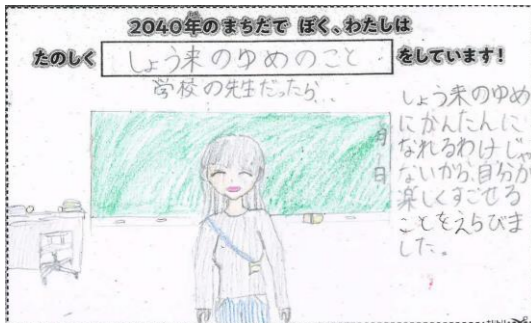 2040年のまちだで ぼく、わたしは
たのしく しょう来のゆめのこと をしています!
学校の先生だったら...
しょう来のゆめ
にかんたんに
なれるわけじゃ
ないから、自分が
楽しくすごせる
ことをえらびま
した。
月
日